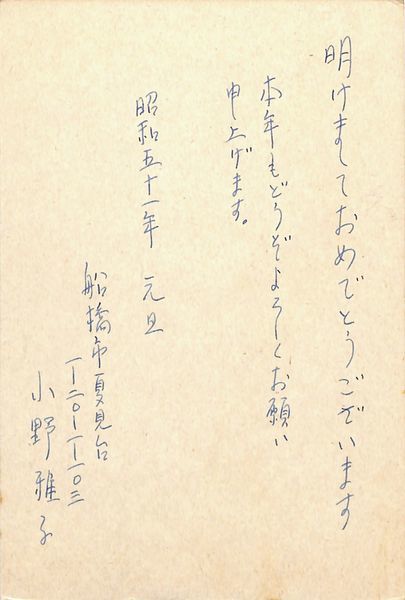 明けましておめでとうございます
本年もどうぞよろしくお願い
申上げます。
昭和五十一年 元旦
船橋市夏見台
一ー二〇ー一ー一〇三
小野雅子